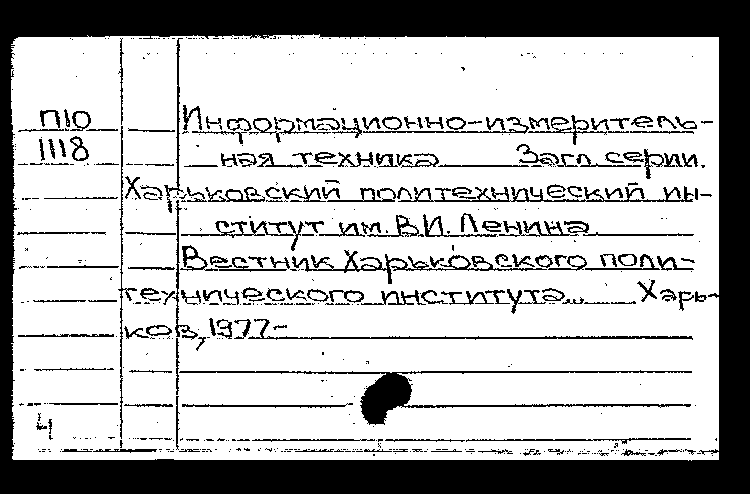 П10 Информационно-измеритель-
1118 ная техника Загл. серии.
Харьковский политехнический ин-
ститут им. В.И. Ленина.
Вестник Харьковского поли-
технического института... Харь-
ков, 1977-
4